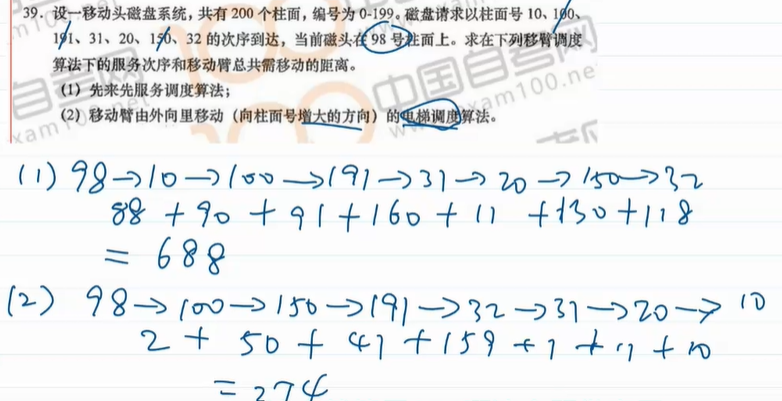 39. 设一移动头磁盘系统，共有 200 个柱面，编号为 0-199。磁盘请求以柱面号 10、100、
191、31、20、150、32 的次序到达，当前磁头在 98 号柱面上。求在下列移臂调度
算法下的服务次序和移动臂总共需移动的距离。
(1) 先来先服务调度算法；
(2) 移动臂由外向里移动（向柱面号增大的方向）的电梯调度算法。
自考网
中国自考网
xam100.ne
xam100.ne
(1) 98→10→100→191→31→20→150→32
88 + 90 + 91 + 160 + 11 + 130 + 118
= 688
(2) 98→100→150→191→32→31→20→10
2 + 50 + 41 + 159 + 1 + 11 + 10
= 274